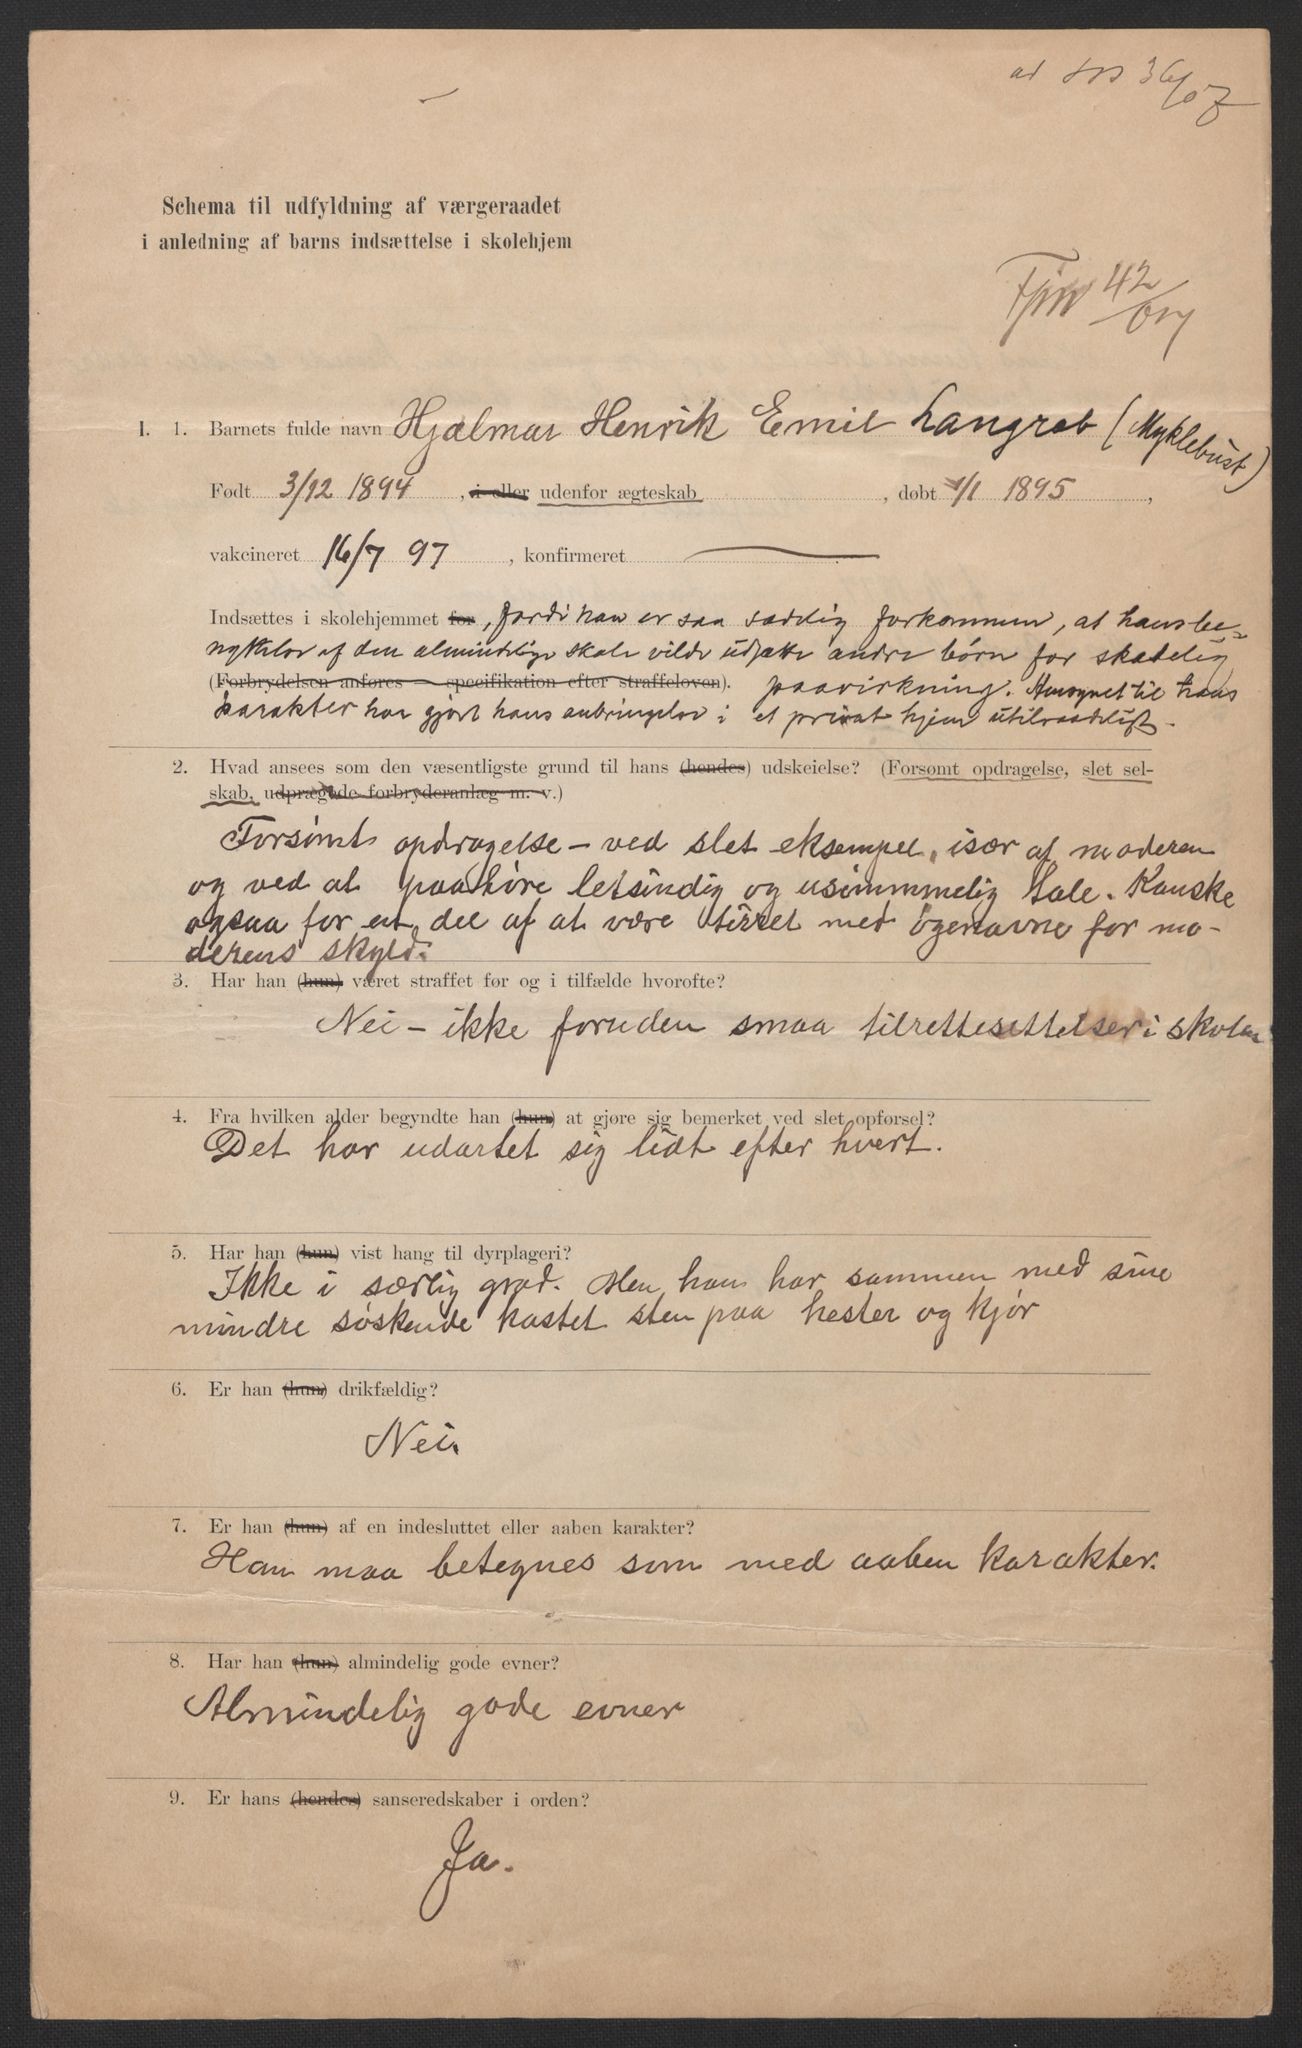 ad 36/07
Schema til udfyldning af værgeraadet
i anledning af barns indsættelse i skolehjem
42/07
I. 1. Barnets fulde navn Hjalmar Henrik Emil Langrab (Myklebust)
Født 3/12 1894, i eller udenfor ægteskab, døbt 1/1 1895,
vakcineret 16/7 97, konfirmeret —
Indsættes i skolehjemmet for, fordi han er saa sædelig forkommen, at hans be-
nyttelse af den almindelige skole vilde udsætte andre børn for skadelig
(Forbrydelsen anføres — specifikation efter straffeloven). paavirkning. Hensynet til hans
karakter har gjort hans anbringelse i et privat hjem utilraadeligt.
2. Hvad ansees som den væsentligste grund til hans (hendes) udskeielse? (Forsømt opdragelse, slet sel-
skab, udprægede forbryderanlæg m. v.)
Forsømt opdragelse – ved slet eksempel, især af moderen
og ved at paahøre letsindig og usømmelig tale. Kanske
ogsaa for en del af at være tirret med øgenavne for mo-
derens skyld.
3. Har han (hun) været straffet før og i tilfælde hvorofte?
Nei – ikke foruden smaa tilrettesættelser i skolen
4. Fra hvilken alder begyndte han (hun) at gjøre sig bemerket ved slet opførsel?
Det har udartet sig lidt efter hvert.
5. Har han (hun) vist hang til dyrplageri?
Ikke i særlig grad. Men han har sammen med sine
mindre søskende kastet sten paa hester og kjør
6. Er han (hun) drikfældig?
Nei.
7. Er han (hun) af en indesluttet eller aaben karakter?
Han maa betegnes som med aaben karakter.
8. Har han (hun) almindelig gode evner?
Almindelig gode evner
9. Er hans (hendes) sanseredskaber i orden?
Ja.